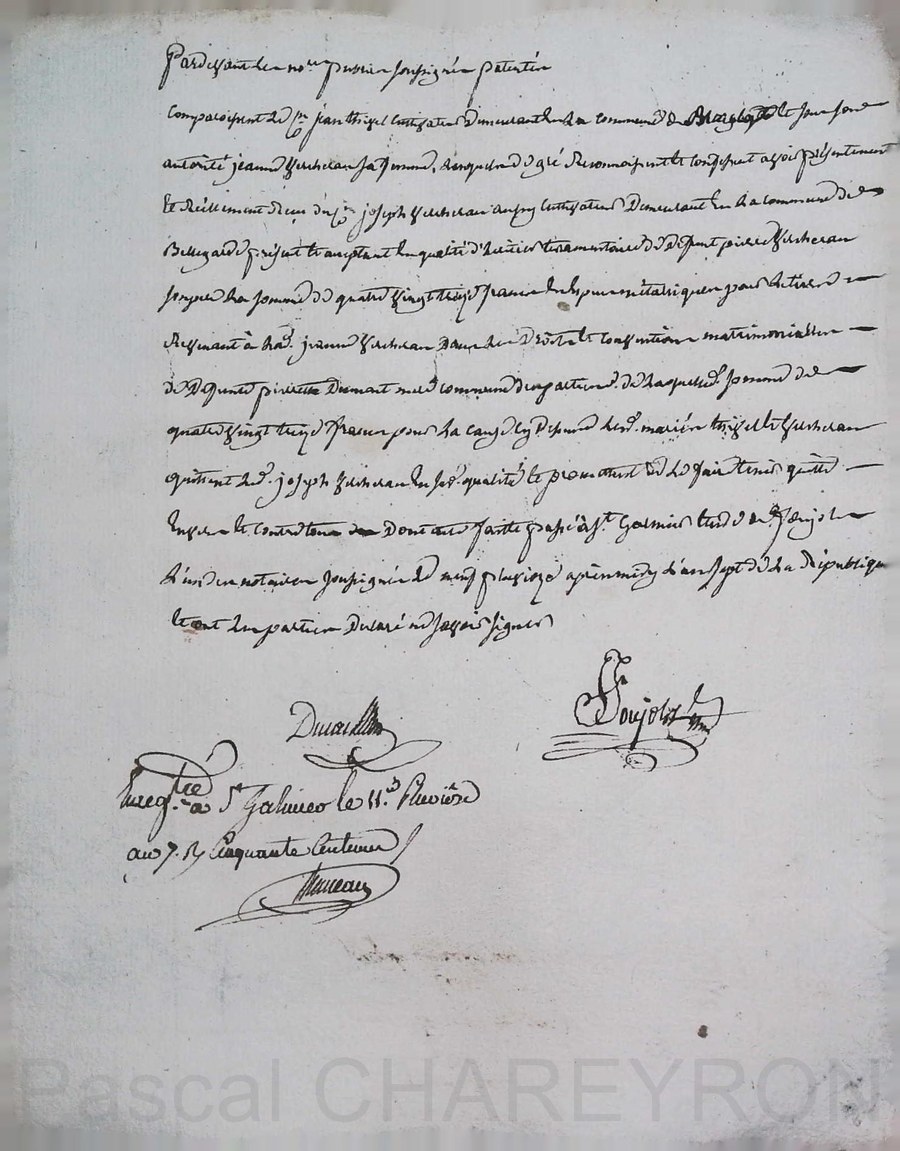 Pardevant les nores publics soussignés patentés
Comparoissent le Cn jean thizel Cultivateur Demeurant en la commune de et sous son
autorité jeanne Vercheran sa femme, lesquels de gré Reconnoissent et Confessent avoir présentement
et Réellement Reçu du Cn joseph Vercheran aussy Cultivateur Demeurant en la commune de
Bellegarde présent et acceptant en qualité d'héritier testamentaire de Defunt pierre Vercheran
son père la somme de quatre vingt treize francs en espèces métalliques pour
Revenant à lad. jeanne Vercheran Dans les Droits et Conventions matrimoniales
de Defunte pierrette mere commune des parties, de laquelle somme de
quatre vingt treize francs pour la cause cy Dessus lesd. mariés thizel et Vercheran
quittent led. joseph Vercheran en sad. qualité et promettent de le faire tenir quitte
Envers et Contre tous Dont acte fait et passé à St Galmier etude de Ponjol
L'un des notaires soussignés le neuf pluvioze après midy L'an sept de la République
et ont les parties Declaré ne savoir signer
Ponjol
Enregtré à St Galmier le 11 Pluviôse
an 7. R. Cinquante Centimes